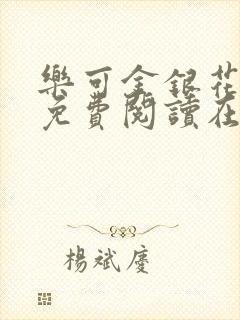 樂可金銀花
免費閱讀在
楊斌慶